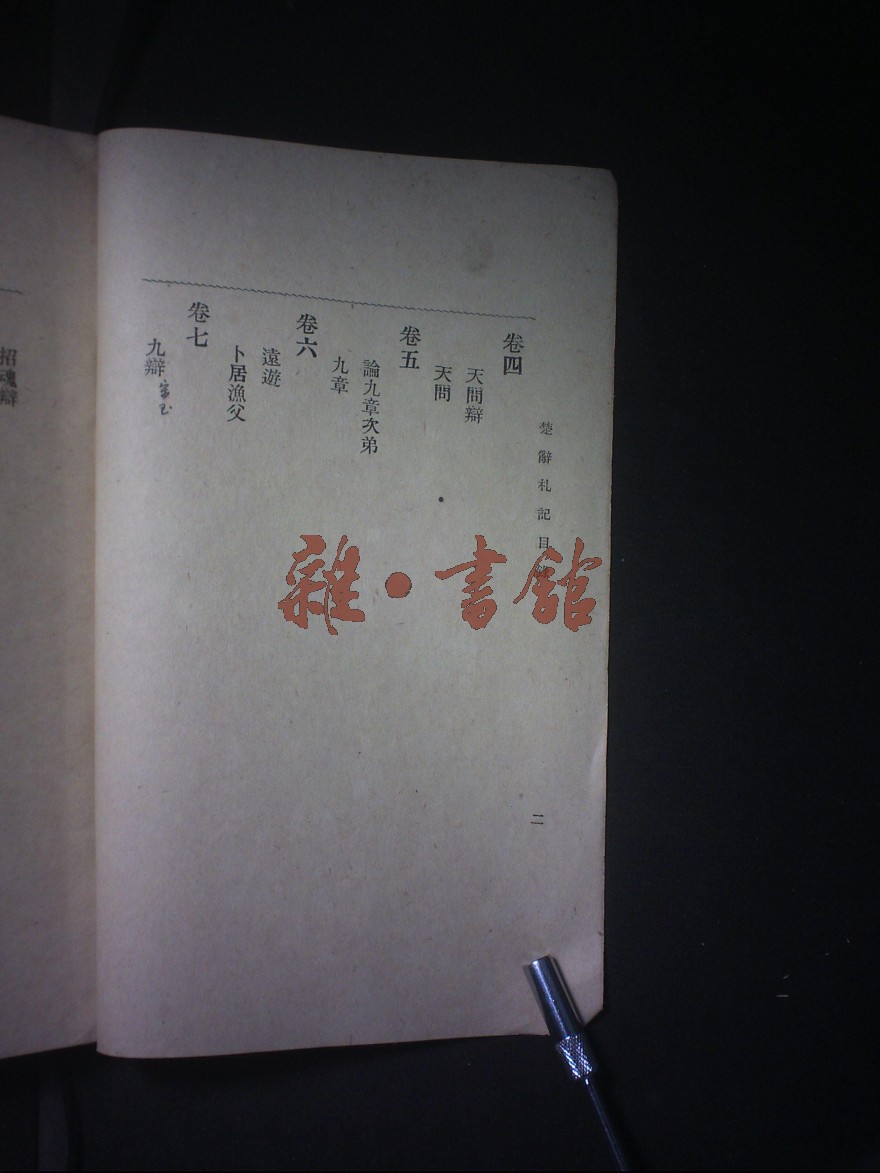 楚辭札記目
二
卷四
天問辯
天問
卷五
論九章次弟
九章
卷六
遠遊
卜居漁父
卷七
九辯 宋玉
招魂辯
雜·書館